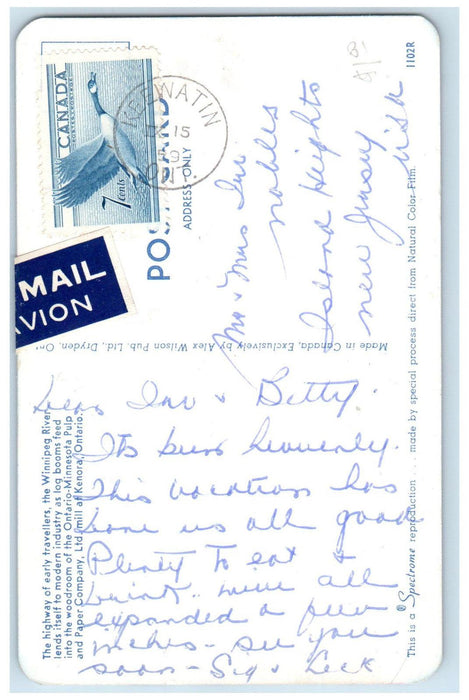 CANADA
POSTES POSTAGE
7 cents
KEEWATIN
15
59
ONT.
MAIL
AVION
POST CARD
ADDRESS ONLY
1102R
Mr & Mrs Inv
Nobles
Island Heights
New Jersey
USA
Made in Canada, Exclusively by Alex Wilson Pub. Ltd., Dryden, Ont
This is a ®Spectrome reproduction ... made by special process direct from Natural Color Film.
The highway of early travellers, the Winnipeg River
lends itself to modern industry as log booms feed
into the woodroom of the Ontario-Minnesota Pulp
and Paper Company, Ltd. mill at Kenora, Ontario.
Dear Inv & Betty.
Its been heavenly.
This vacation has
done us all good
Plenty to eat &
drink were all
expanded a few
inches - see you
soon - Sig &